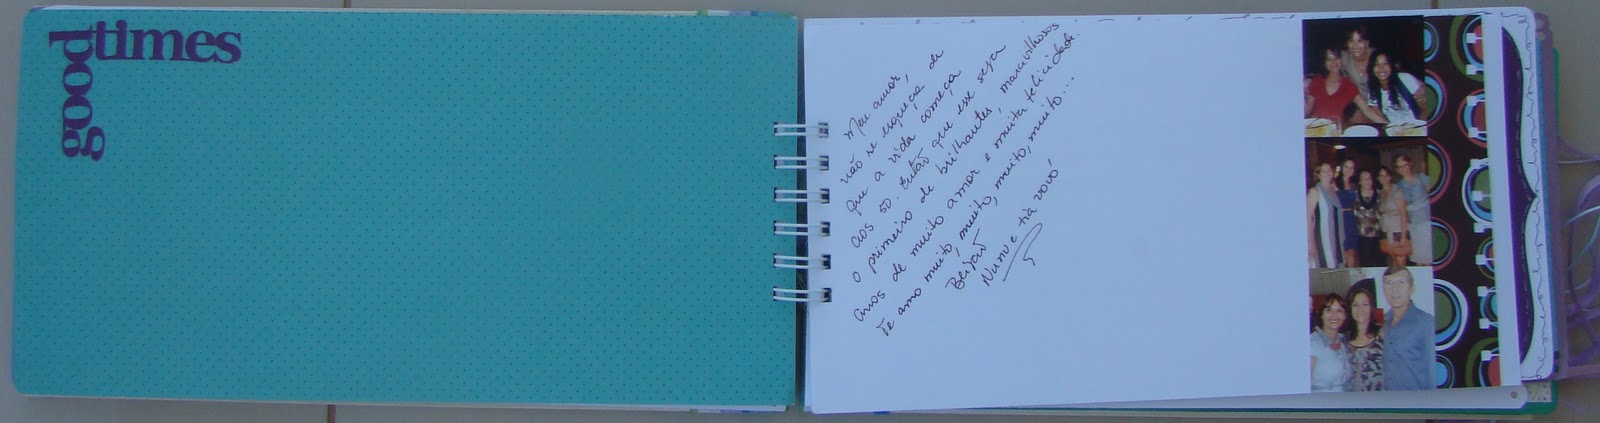 good
times
Meu amor,
não se esqueça de
que a vida começa
aos 50. Então que esse seja
o primeiro de brilhantes, maravilhosos
anos de muito amor e muita felicidade.
Te amo muito, muito, muito, muito, muito...
Beijão
e tia